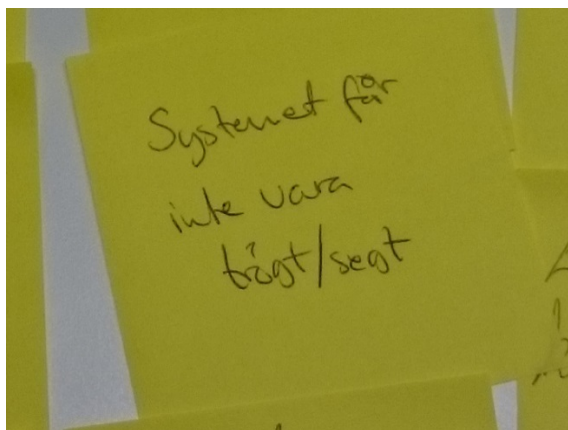 Systemet får
inte vara
trögt/segt